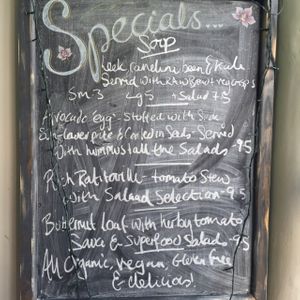 Specials...
Soup
Leek, bean & Kale
Served with RAW Bread + veg crisps
Sm 3 Lg 5 + Salad 7.5
Avocado 'egg' - Stuffed with
Cooked in Seeds - Served
With hummus + all the Salads - 9.5
Rich Ratatouille - tomato Stew
With Salad Selection - 9.5
Butternut loaf with herby tomato
Sauce & Superfood Salads - 9.5
All Organic, vegan, Gluten free
& delicious!